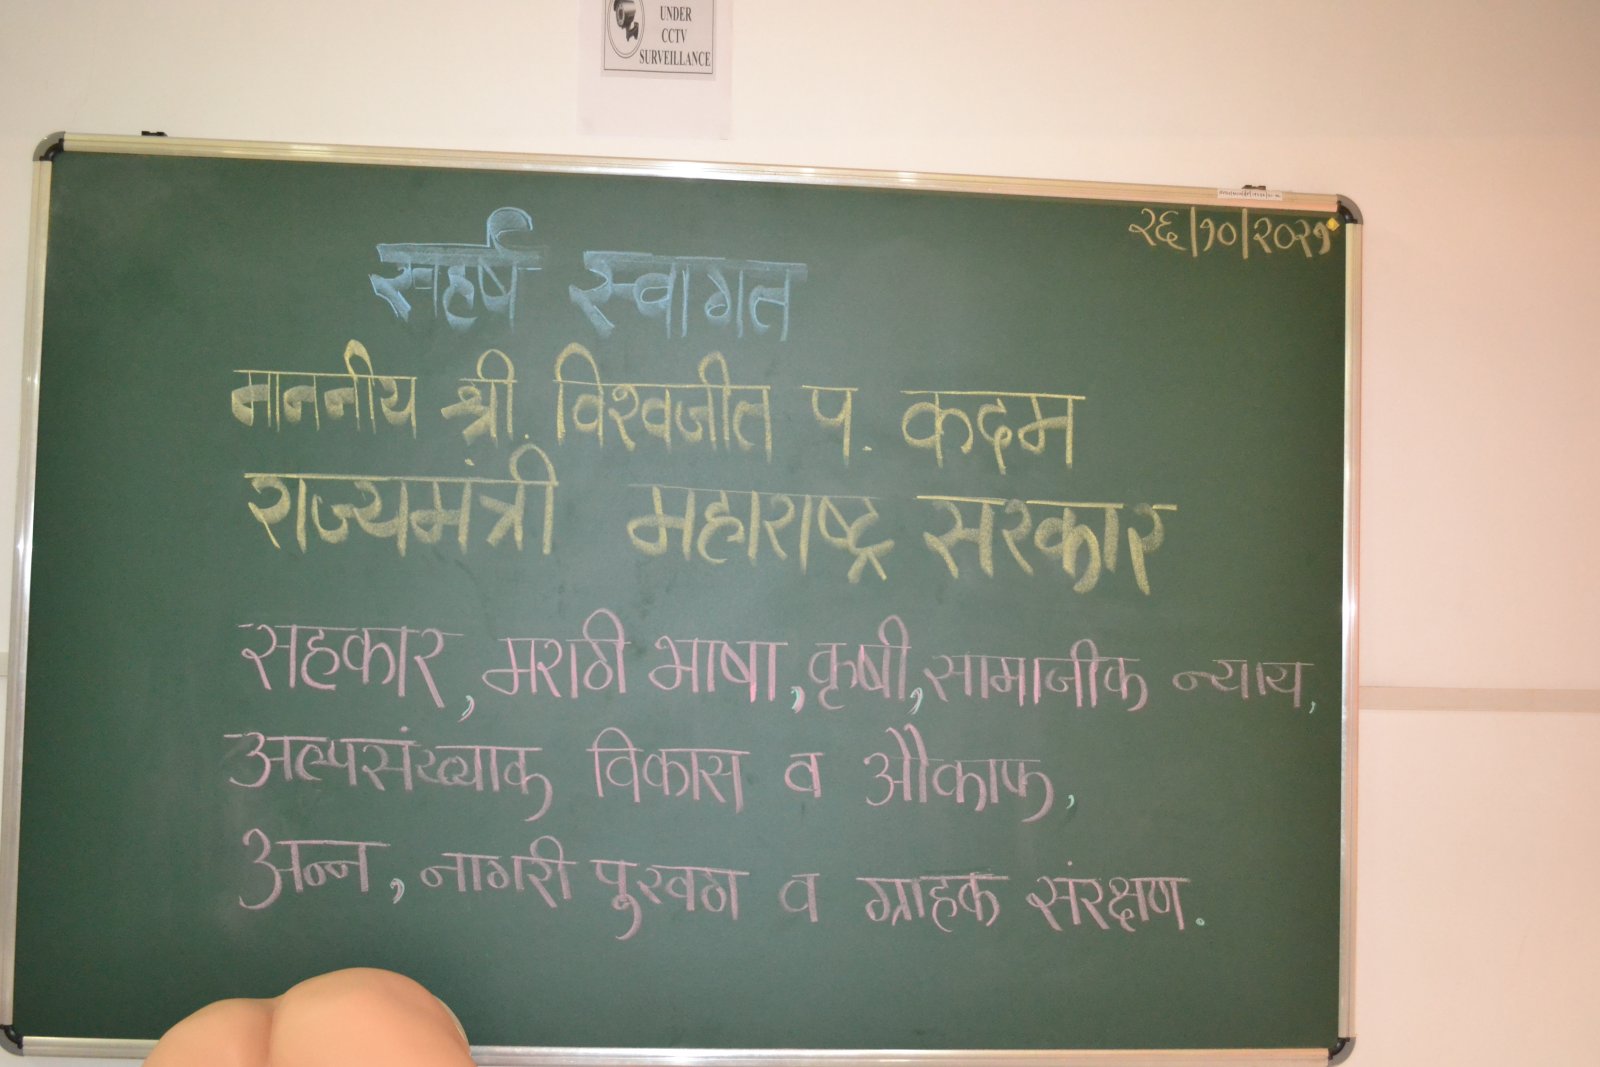 UNDER
CCTV
SURVEILLANCE
२६/१०/२०२१
सहर्ष स्वागत
माननीय श्री. विश्वजीत प. कदम
राज्यमंत्री महाराष्ट्र सरकार
सहकार, मराठी भाषा, कृषी, सामाजीक न्याय,
अल्पसंख्याक विकास व औकाफ,
अन्न, नागरी पुरवठा व ग्राहक संरक्षण.